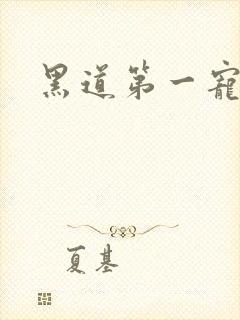 黑道第一寵
夏基